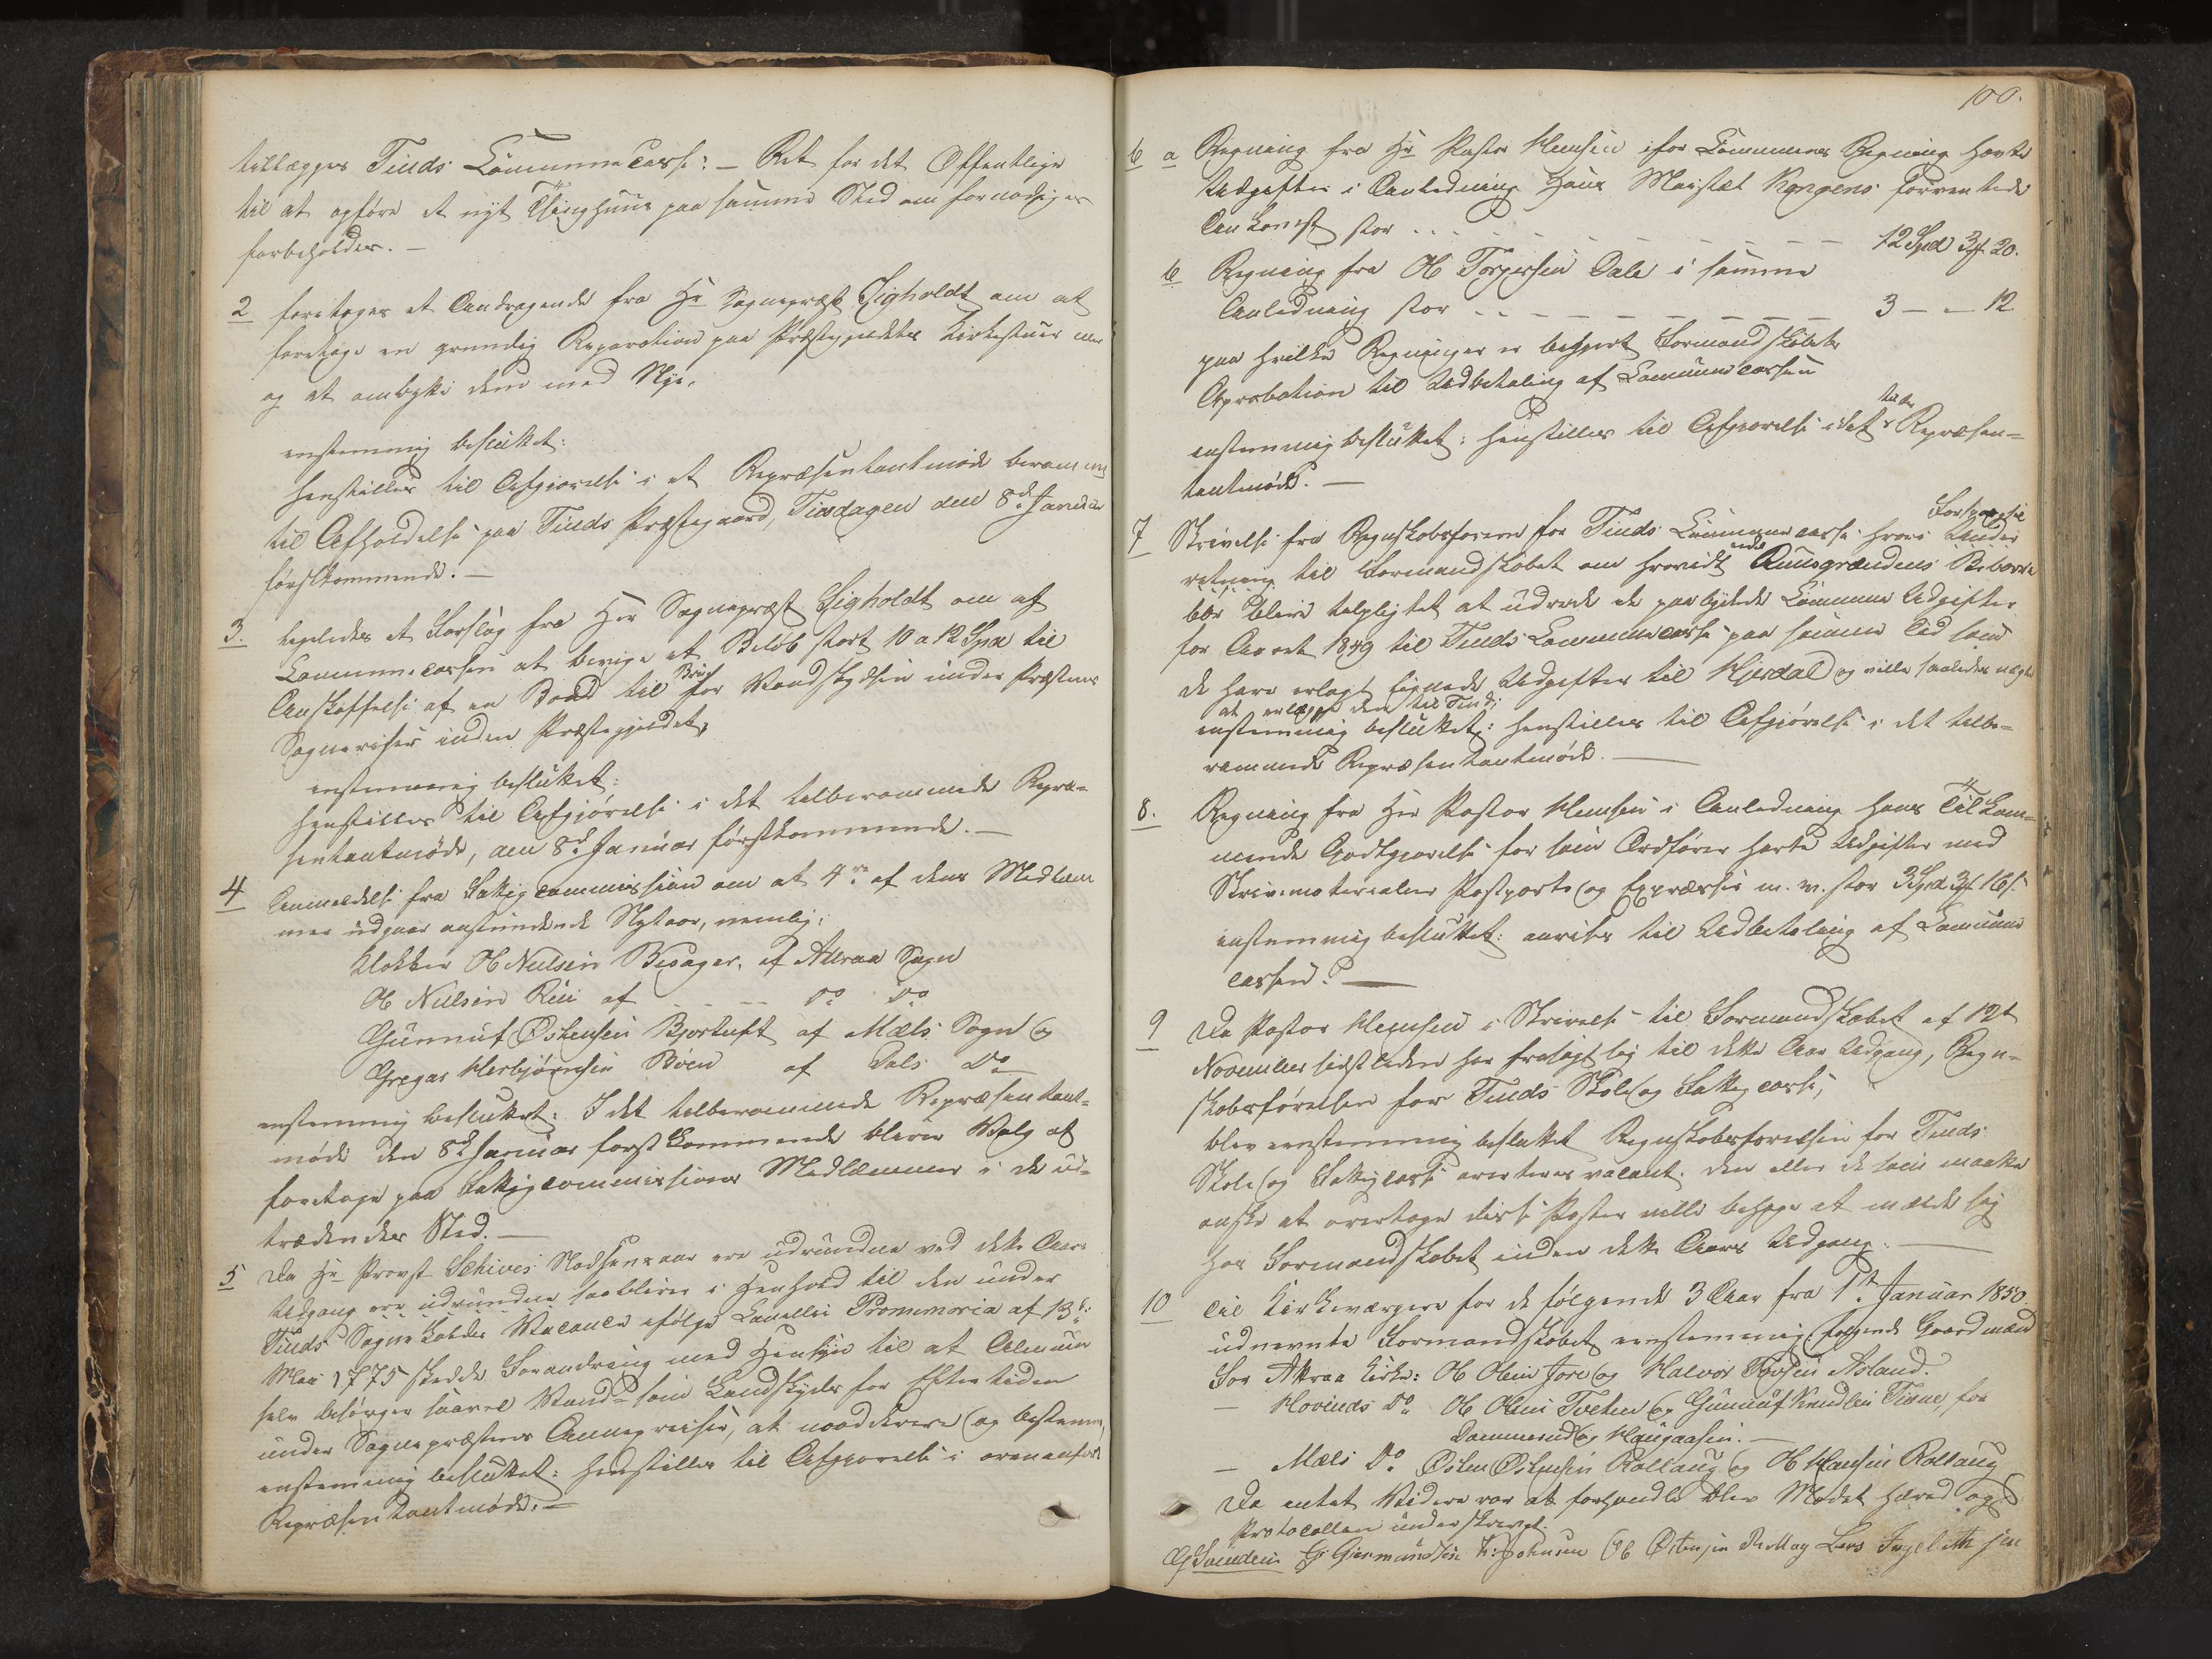 tillægges Tinds Communecasse: — Ret for det Offentlige
til at opføre et nyt Thinghuus paa samme Sted om fornødiges
forbeholdes. —
2 foretoges et Andragende fra Hr Sognepræst Sigholdt om at
foretage en grundig Reparation paa Præstegjeldets Kirkestuer
og at ombytte dem med Nye,
enstemmig besluttet:
henstilles til Afgjørelse i et Repræsentantmøde berammet
til Afholdelse paa Tinds Præstegaard, Tirsdagen den 8de Januar
førstkommende. —
3. ligeledes et Forslag fra Her Sognepræst Sigholdt om af
Communecassen at bevige et Beløb stort 10 a 12 Spd til
Anskaffelse af en Baad til Brug for Vandskydsen under Præstens
Sognereiser inden Præstegjeldet,
enstemmig besluttet:
henstilles til Afgjørelse i det talberammede Repræ-
sentantmøde, den 8de Januar førstkommende. —
4 Anmeldelse fra Fattigcommission om at 4re af dens Medlem
mer udgaar anstundende Nytaar, nemlig:
Klokker Ole Nielsen Bæsager, af Attraa Sogn
Ole Nielsen Rui af - - - Do Do
Gunnuf Østensen Bjortuft af Mæls Sogn og
Gregar Herbjørnsen Bøen af Dals Do
enstemmig besluttet: I det talberammede Repræsentant-
møde den 8de Januar førstkommende bliver Valg at
foretage paa Fattigcommissions Medlemmer i de ud-
trædendes Sted. —
5 Da Hr Provst Schives Naadsensaar ere udrundne ved dette Aars
Udgang ere udrundne saa bliver i Henhold til den under
Tinds Sognekalds Vacance ifølge Cancellie Promemoria af 13de
Mai 1775 skedde Forandring med Hensyn til at Almuen
selv besørger saavel Vand- som Landskyds for Eftertiden
under Sognepræstens Annexreiser, at
enstemmig besluttet: henstilles til Afgjørelse i ovenanførte
Repræsentantmøde. —
100.
6 a Regning fra Hr Pastor Hemsen for Communens Regning havte
Udgifter i Anledning Hans Majestæt Kongens forventede
Ankomst stor . . . - - - - - - - 12 Spd 3 ß 20.
b Regning fra Ole Torgersen Dale i samme
Anledning stor - - - - - - - - 3 — — 12
paa hvilke Regninger er begjert Formandskabets
Aprobation til Udbetaling af Communecassen
enstemmig besluttet: henstilles til Afgjørelse i det Repræsen=
tantmøde. —
7 Skrivelse fra Regnskabsføreren for Tinds Communecasse hvori
Forspørgsel
til Formandskabet om hvorvidt Beboere
bør blive talpligtet at udrede de paabydede Commune Udgifter
for Aaret 1849 til Tinds Communecasse paa samme Tid som
de have erlagt lignede Udgifter til Hjerdal og ville saaledes nægte
at erlægge dem til Tind;
enstemmig besluttet: henstilles til Afgjørelse i det talbe-
rammede Repræsentantmøde. —
8. Regning fra Her Pastor Hemsen i Anledning hans Tilkom-
mende Godtgjørelse for som Ordfører havte Udgifter med
Skrivematerialer Postporto og Expresser m. v. stor 3 Spd 3 ß 16 s.
enstemmig besluttet: anvises til Udbetaling af Commune
cassen. —
9 Da Pastor Hemsen i Skrivelse til Formandskabet af 12te
November sidstleden har frasagt sig til dette Aars Udgang, Regn-
skabsførelsen for Tinds Skole og Fattigcasse,
blev eenstemmig besluttet Regnskabsførelsen for Tinds
Skole og Fattigcasse averteres vacant. Den eller de som maatte
ønske at overtage disse Poster ville behage at melde sig
hos Formandskabet inden dette Aars Udgang. —
10 Til Kirkeværgere for de følgende 3 Aar fra 1ste Januar 1850.
udnevnte Formandskabet eenstemmig følgende Gaardmænd
For Attraa Kirke: Ole Olsen Jore og Halvor Torsen Aaland.
— Hovinds Do Ole Olsen Tveten og Gunnuf Knudsen Tinne, for
Dammerud og Haugaasen. —
— Mæls Do Østen Østensen Rollaug og Ole Hansen Rollaug
Da intet Videre var at forhandle blev Mødet hævet og
Protocollen underskrevet.
G Svendsen G. Giermundsen K: Johnsen Ole Østensen Rollag Lars Ingelethsen